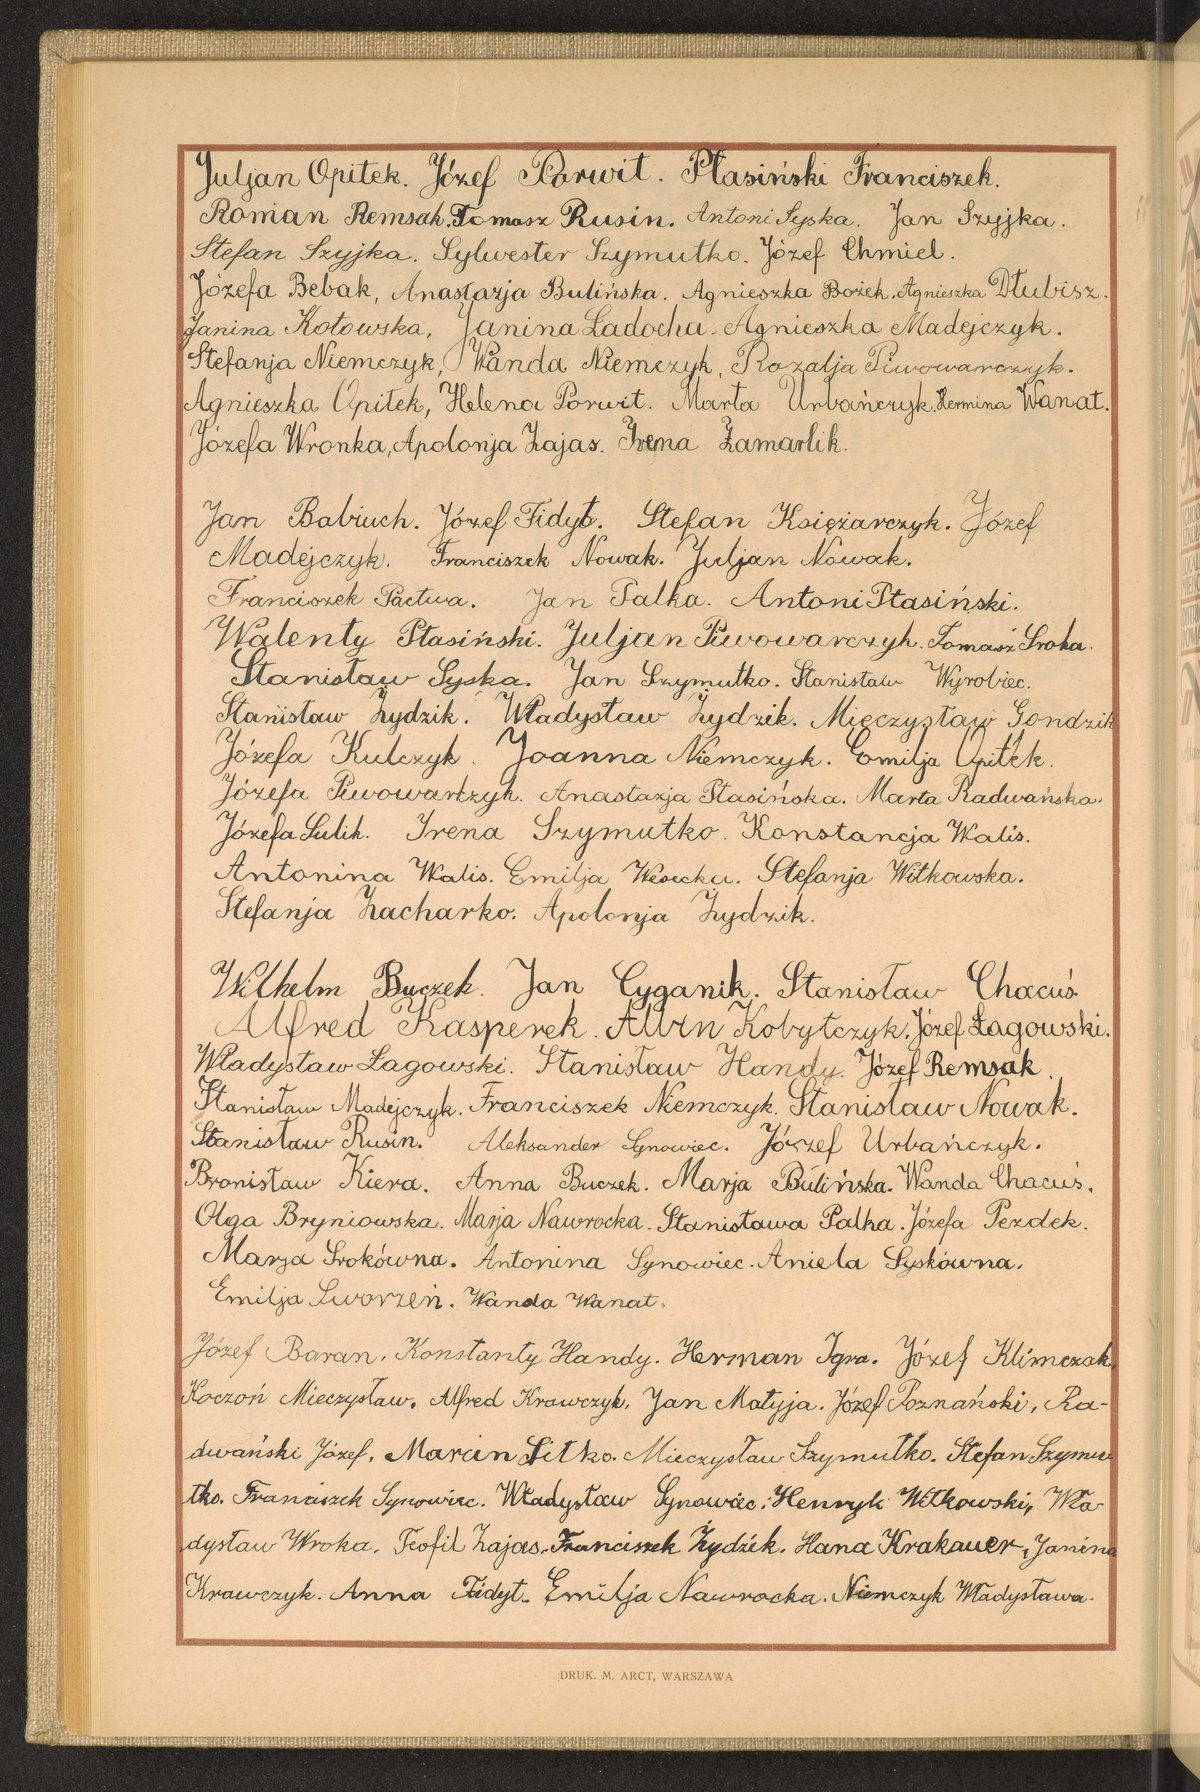 Juljan Opitek. Józef Porwit. Ptasiński Franciszek.
Roman Remsak. Tomasz Rusin. Antoni Syska. Jan Szyjka.
Stefan Szyjka. Sylwester Szymutko. Józef Chmiel.
Józefa Bebak, Anastazja Bulińska. Agnieszka Bożek. Agnieszka Dłubisz.
Janina Kotowska, Janina Ładocha. Agnieszka Madejczyk.
Stefanja Niemczyk, Wanda Niemczyk, Rozalja Piwowarczyk.
Agnieszka Opitek, Helena Porwit. Marta Urbańczyk. Hermina Wanat.
Józefa Wronka, Apolonja Zając. Irena Zamarlik.
Jan Babiuch. Józef Fidyt. Stefan Księżarczyk. Józef
Madejczyk. Franciszek Nowak. Juljan Nowak.
Franciszek Pactwa. Jan Palka. Antoni Ptasiński.
Walenty Ptasiński. Juljan Piwowarczyk. Tomasz Sroka.
Stanisław Syska. Jan Szymutko. Stanisław Wyrobiec.
Stanisław Żydzik. Władysław Żydzik. Mięczysław Gondzik
Józefa Kulczyk. Joanna Niemczyk. Emilja Opitek.
Józefa Piwowarczyk. Anastazja Ptasińska. Marta Radwańska.
Józefa Sulik. Irena Szymutko. Konstancja Walis.
Antonina Walis. Emilja Wesecka. Stefanja Witkowska.
Stefanja Zacharko. Apolonja Żydzik.
Wilhelm Buczek. Jan Cyganik. Stanisław Chacuś.
Alfred Kasperek. Alwin Kobyłczyk. Józef Łagowski.
Władysław Łagowski. Stanisław Handy. Józef Remsak.
Stanisław Madejczyk. Franciszek Niemczyk. Stanisław Nowak.
Stanisław Rusin. Aleksander Synowiec. Józef Urbańczyk.
Bronisław Kiera. Anna Buczek. Marja Bulińska. Wanda Chacuś.
Olga Bryniowska. Marja Nawrocka. Stanisława Palka. Józefa Pezdek.
Marja Srokówna. Antonina Synowiec. Aniela Syskówna.
Emilja Sworzeń. Wanda Wanat.
Józef Baran. Konstanty Handy. Herman Igra. Józef Klimczak,
Koczoń Mieczysław. Alfred Krawczyk. Jan Matyja. Józef Poznański, Ra-
dwański Józef. Marcin Sitko. Mieczysław Szymutko. Stefan Szymu
tko. Franciszek Synowiec. Władysław Synowiec. Henryk Witkowski, Wła
dysław Wroka. Teofil Zając. Franciszek Żydzik. Hana Krakauer, Janina
Krawczyk. Anna Fidyt. Emilja Nawrocka. Niemczyk Władysława.
DRUK. M. ARCT, WARSZAWA